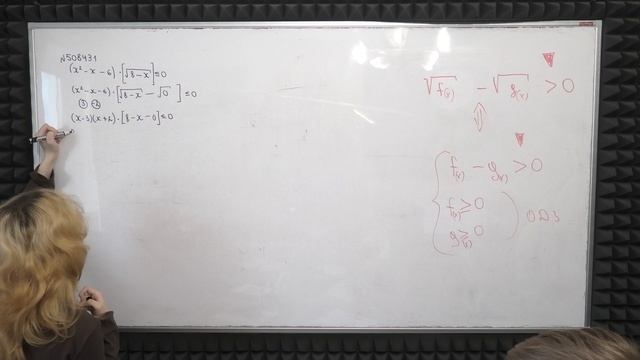 N508431
(x² - x - 6) · [√8-x] ≤ 0
(x² - x - 6) · [√8-x - √0] ≤ 0
③ -2
(x-3)(x+2) · [8-x-0] ≤ 0
√f(x) - √g(x) > 0
⇕
f(x) - g(x) > 0
f(x) ≥ 0
g(x) ≥ 0
ОДЗ